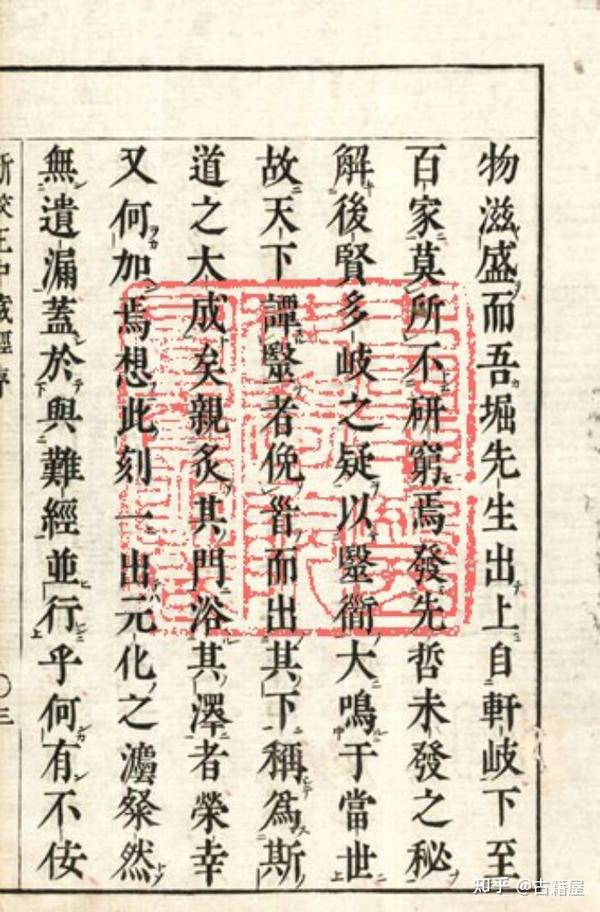 物滋盛而吾堀先生出上自軒岐下至
百家莫所不研窮焉發先哲未發之秘
解後賢多岐之疑以毉衜大鳴于當世
故天下譚毉者俛首而出其下稱為斯
道之大成矣親炙其門浴其澤者榮幸
又何加焉想此刻一出元化之濁粲然
無遺漏蓋於與難經並行乎何有不佞
新校正中藏經序
〇三
知乎 @古籍屋